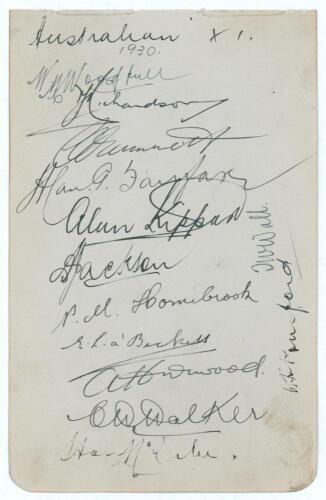 Australian XI.
1930.
W M Woodfull
V Richardson
C V Grimmett
Alan. G. Fairfax
Alan Kippax
A Jackson
P. M. Hornibrook
E. L. a'Beckett
A Hurwood.
C W Walker
T W Wall.
W H Ponsford